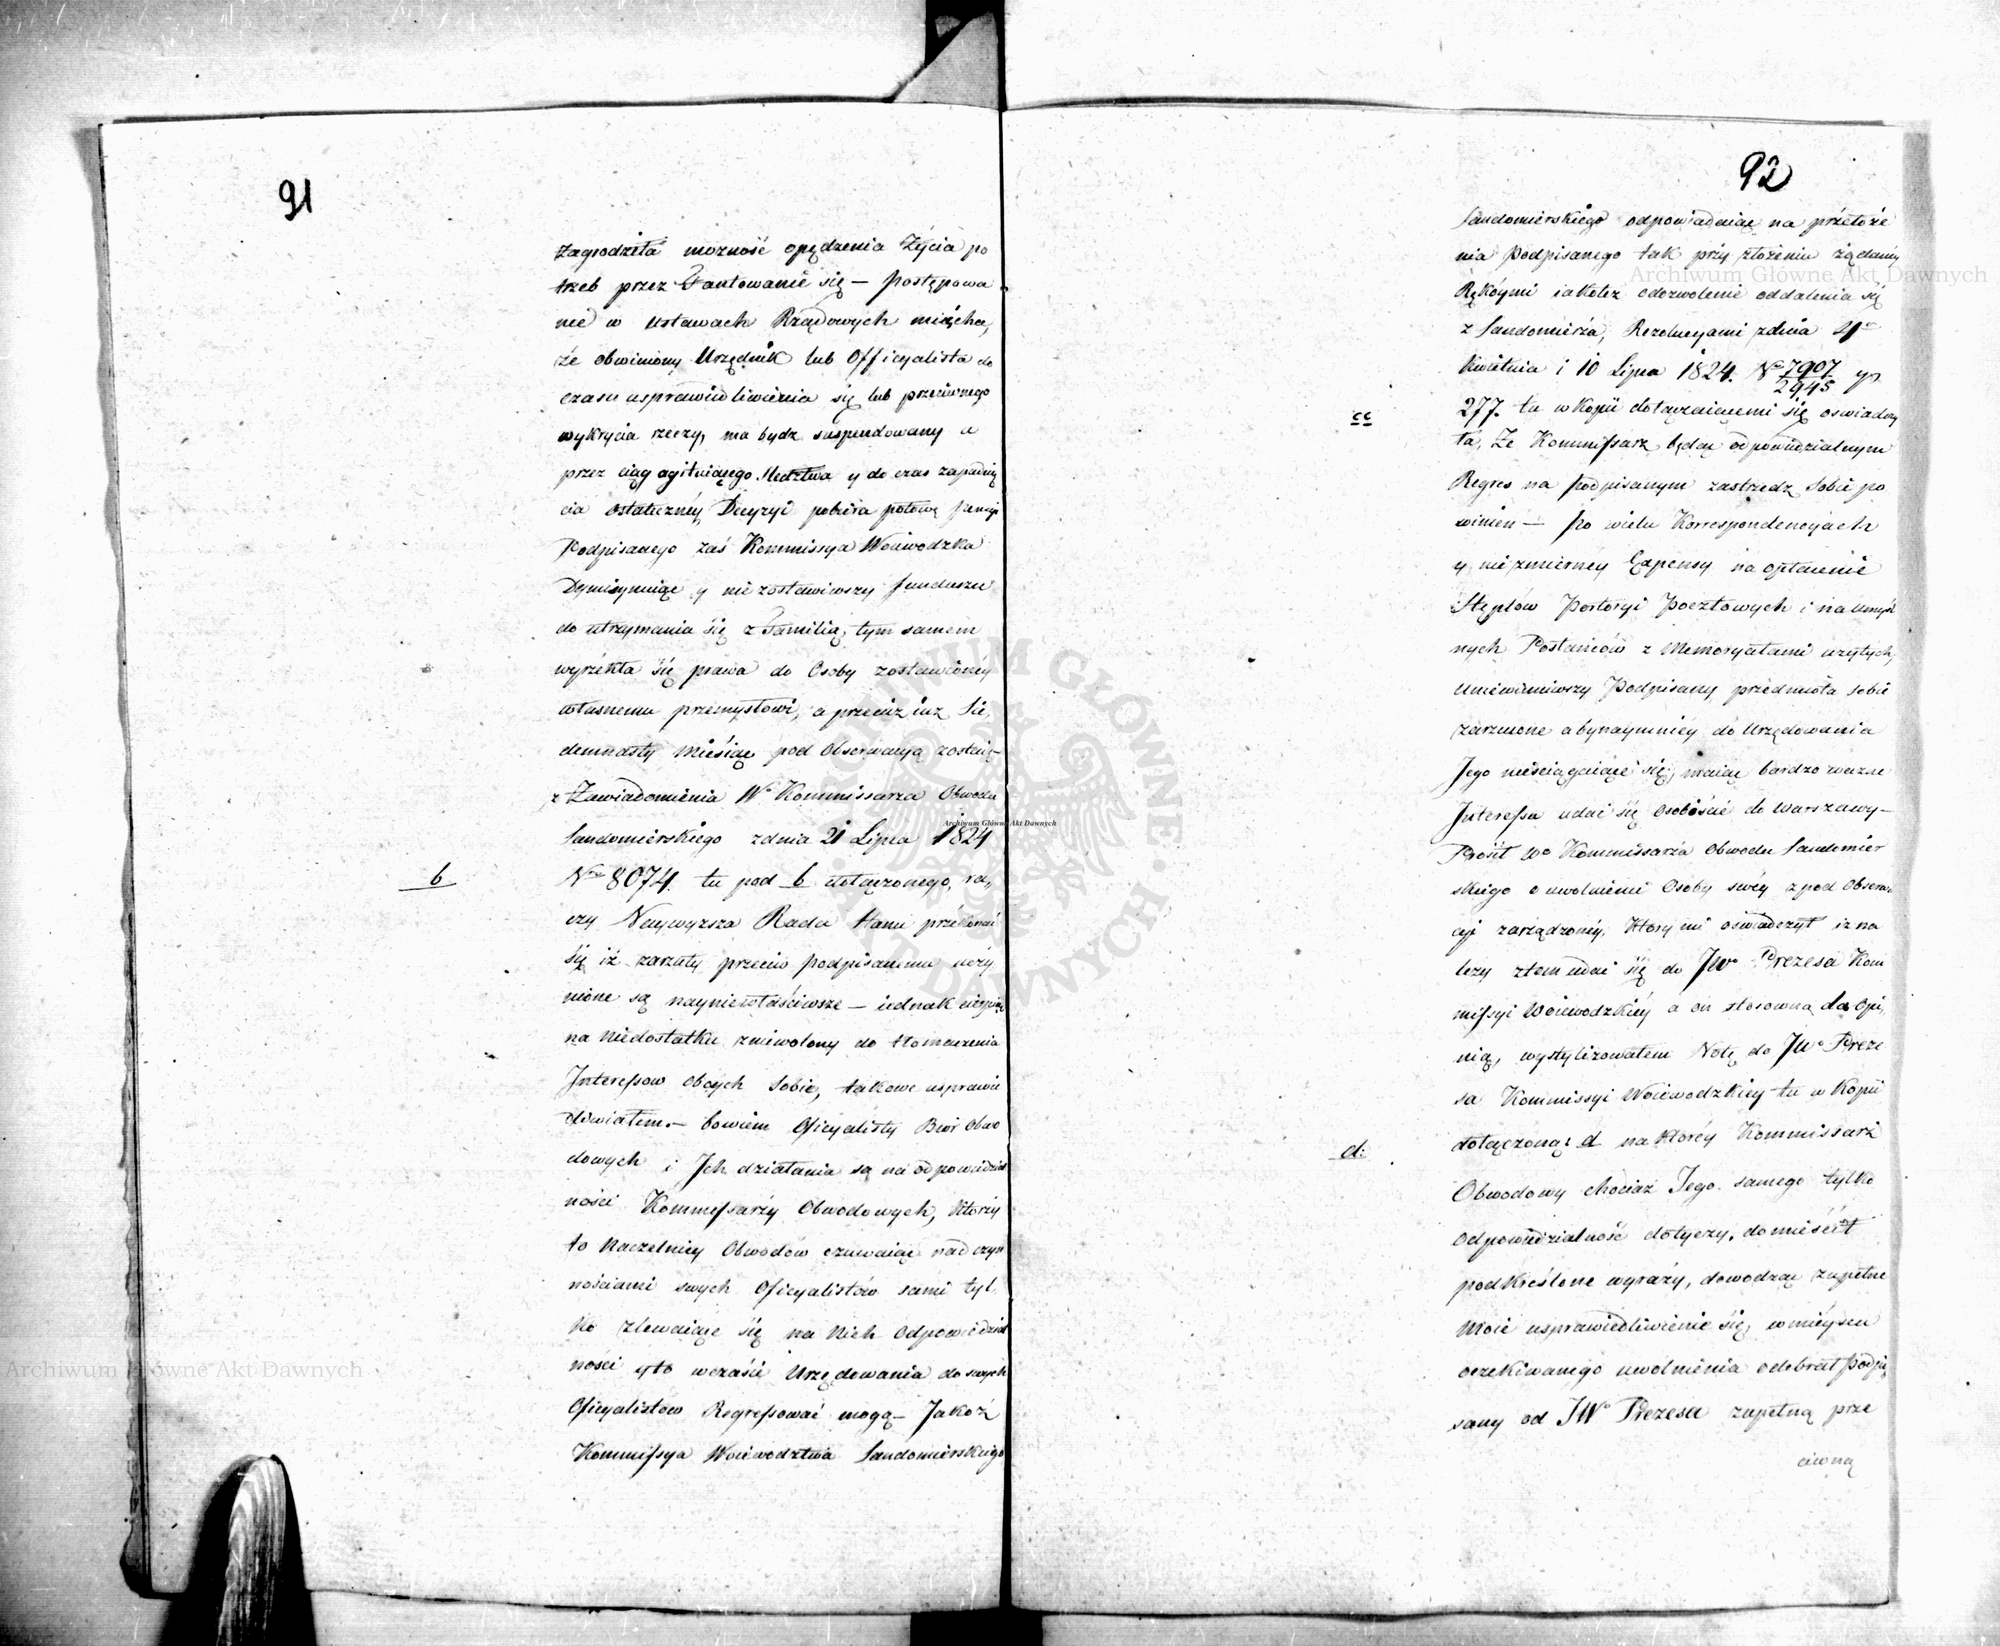 91
zagrodziła możność opędzenia Życia po
trzeb przez Fantowanie się — postępowa
nie w ustawach Rządowych mieścha,
że obwiniony Urzędnik lub Officyalista do
czasu usprawiedliwienia się lub przeciwnego
wykrycia rzeczy, ma bydz suspendowany a
przez ciąg agituiącego Sledztwa y do czas zapadnię
cia ostateczney Decyzyi pobiera połowę pensyi
Podpisanego zaś Kommissya Woiewodzka
Dymisynuiąc y nie zostawiwszy funduszu
do utrzymania się z Familią, tym samem
wyrzekła się prawa do Osoby zostawioney
własnemu przemysłowi, a przeciż iuż Sie,
demnasty Miesiąc pod Obserwacyą zostaię—
z Zawiadomienia Wo Kommissarza Obwodu
Sandomierskiego z dnia 21 Lipca 1824
b
Nro 8074. tu pod b dołączonego, ra,,
czy Naywyzsza Rada Stanu przekonać
się iż zarzuty przeciw podpisanemu uczy
nione są nayniewłaściwsze — iednak cierpiąc
na Niedostatku zniewolony do tłomaczenia
Interessow obcych Sobie, takowe usprawie
dliwiałem. — bowiem Oficyalisty Biór Obwo
dowych i Ich działania są na odpowiedzial
ności Kommissarzy Obwodowych, którzy
to Naczelnicy Obwodów czuwaiąc nad czyn
nościami swych Oficyalistów sami tyl,
ko zlewaiące się na Nich Odpowiedzial
ności yto wczasie Urzędowania do swych
Oficyalistów Regressować mogą — Jakoż
Kommissya Woiewodztwa Sandomierskiego
92
Sandomierskiego odpowiadaiąc na przełoże
nia Podpisanego tak przy złożeniu żądaney
Rękoymi iakoteż odozwolenie oddalenia się
z Sandomierza, Rezolucyami zdnia
Kwietnia i 10 Lipca 1824. No 7907/2945 y
cc
277. tu w Kopii dołączaiącemi się oswiadczy
ła, Ze Kommissarz będąc odpowiedzialnym
Regres na podpisanym zastrzedz Sobie po
winien — Po wielu Korrespondencyach
y niezmierney Expensy na opłacenie
Stęplów Portoryi Pocztowych i na Umyśl
nych Posłańców z Memoryałami użytych,
Uniewinniwszy Podpisany, przedmiota sobie
zarzucone abynaymniey do Urzędowania
Jego nieściągaiące się, maiąc bardzo wazne
Interessa udać się Osobiście do Warszawy —
Prosił Wo Kommissarza Obwodu Sandomier
skiego o uwolnienie Osoby swéy z pod Obserwa
cyi zarządzoney, Ktory mi oswiadczył iz na
leży ztem udać się do JWo Prezesa Kom
missyi Woiewodzkiey a on stosowną da Opi,
nią, wystylizowałem Notę do JWo Preze
sa Kommissyi Woiewodzkiey tu w Kopii
d:
dołączoną: d na ktorey Kommissarz
Obwodowy chociaż Jego samego tylko
odpowiedzialność dotyczy, domieścił
podkreślone wyrazy, dowodząc zupełne
Moie usprawiedliwienie się, wmieyscu
oczekiwanego uwolnienia odebrał Podpi
sany od JWo Prezesa zupełną prze
ciwną
Archiwum Główne Akt Dawnych
Archiwum Główne Akt Dawnych
Archiwum Główne Akt Dawnych
ARCHIWUM GŁÓWNE · AKT DAWNYCH ·